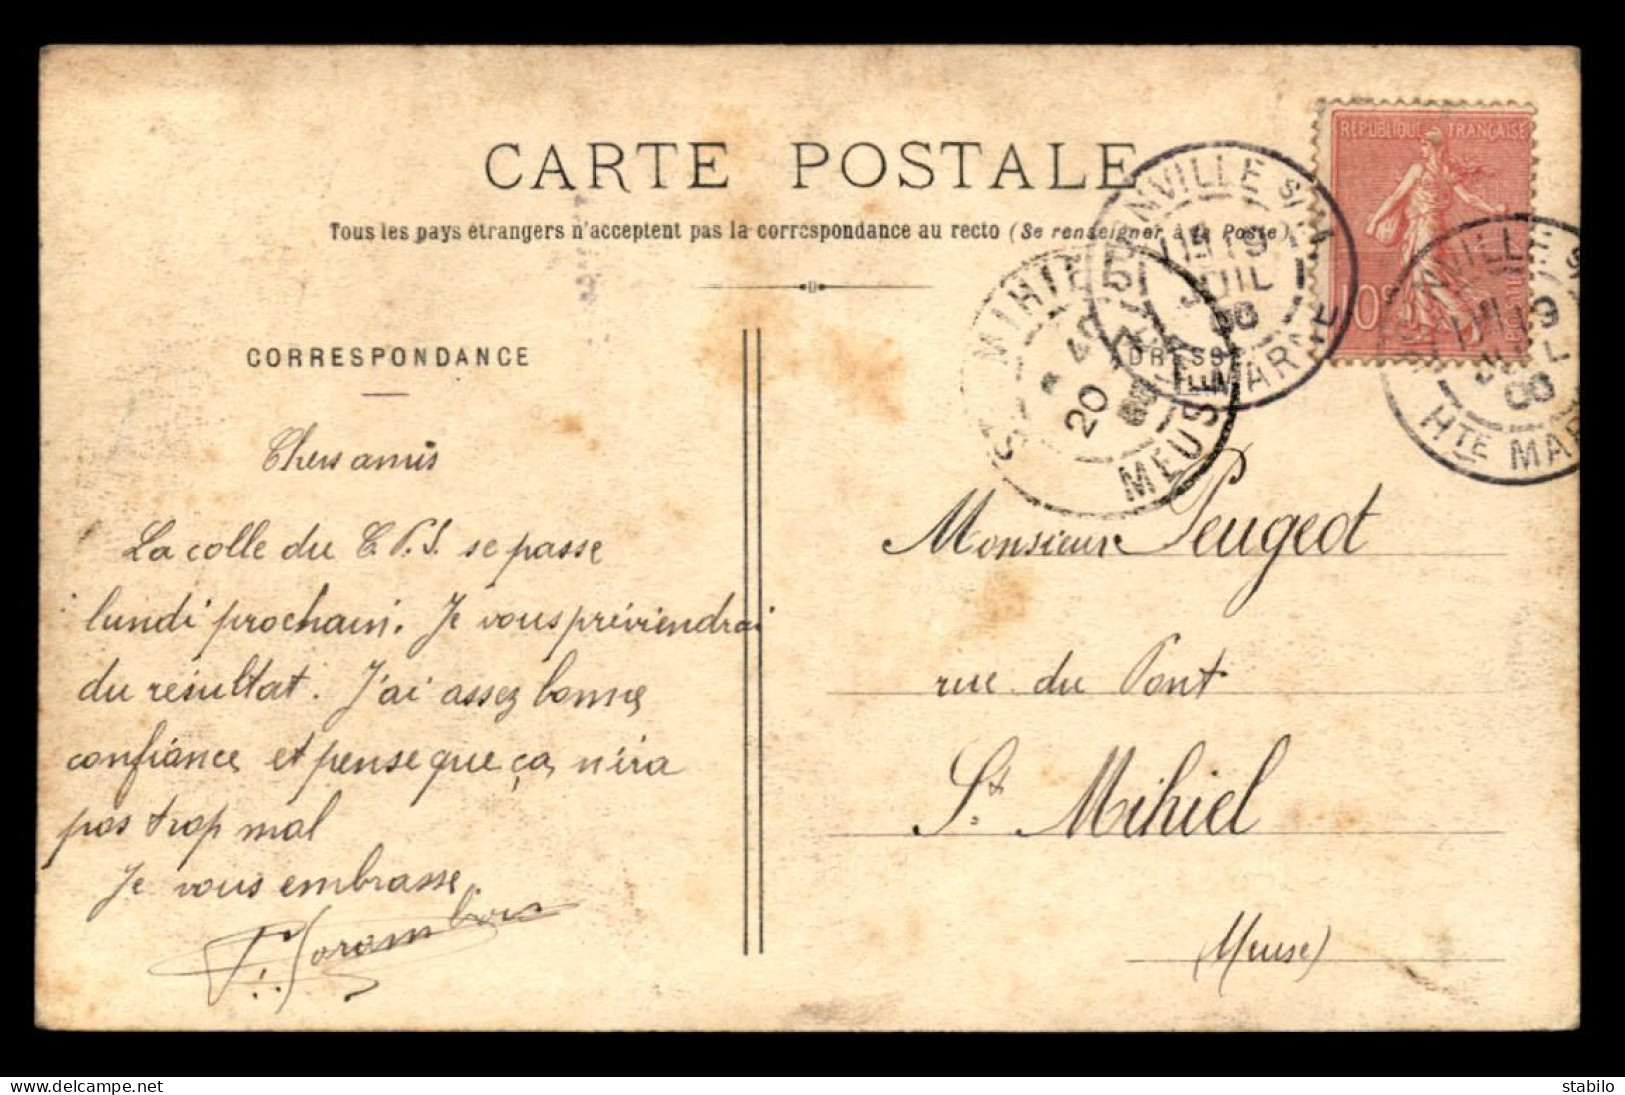 CARTE POSTALE
Tous les pays étrangers n'acceptent pas la correspondance au recto (Se renseigner à la Poste)
CORRESPONDANCE
Chers amis
La colle du C.P.S. se passe
lundi prochain. Je vous préviendrai
du résultat. J'ai assez bonne
confiance et pense que ça n'ira
pas trop mal
Je vous embrasse.
REPUBLIQUE FRANÇAISE
10c
POSTES
NVILLE S/
19
JUIL
HTE MARNE
ST MIHIEL
20
MEUSE
ADRESSE
Monsieur Peugeot
rue du Pont
St. Mihiel
(Meuse)
stabilo